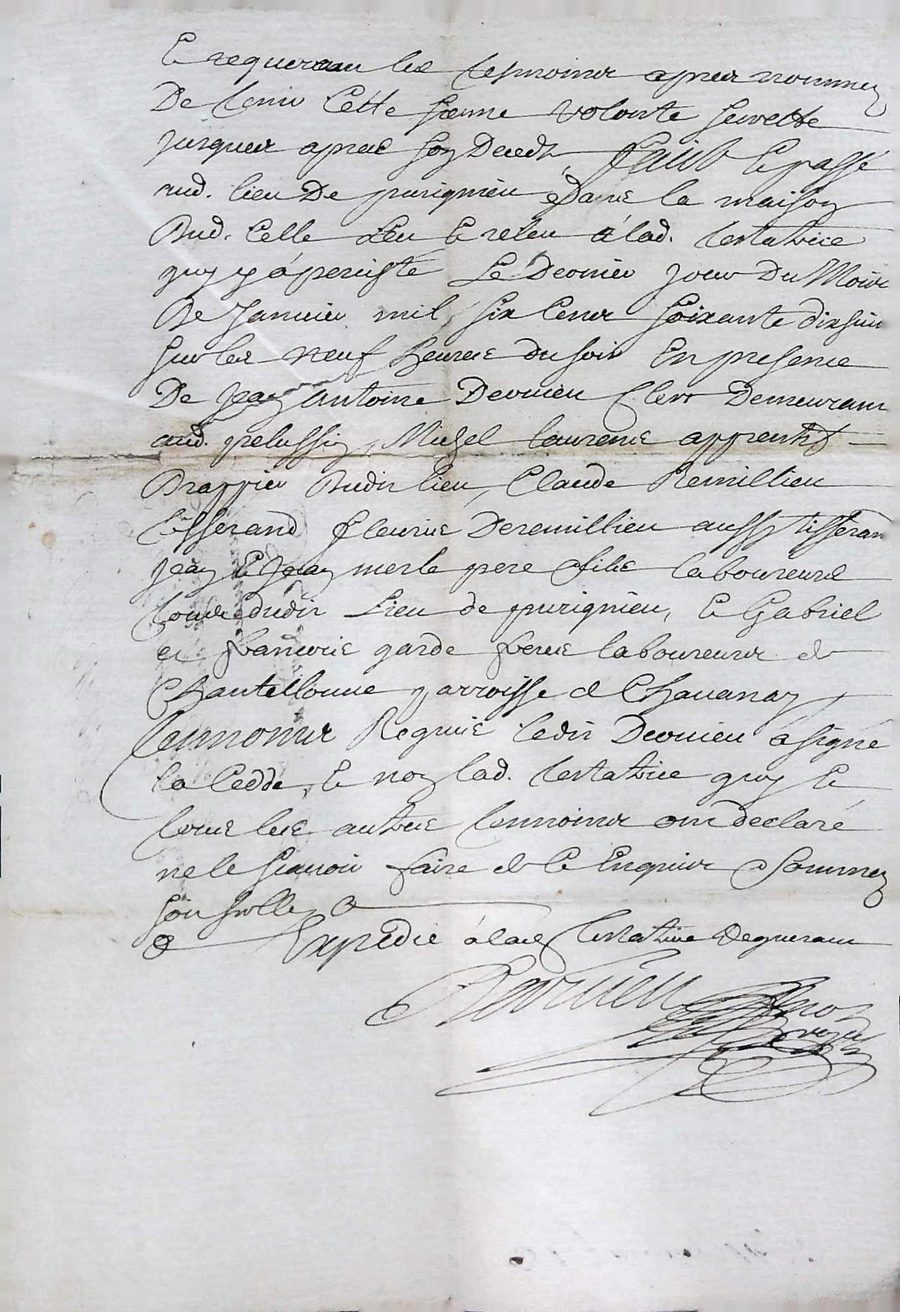 Et requerant les tesmoins apres nommez
De tenir cette sienne volonté secrette
jusques apres son Deceds Faict et passé
aud. lieu De purignieu Dans la maison
Dud. celle Leu et releu a lad. testatrice
quy y a persisté Le Dernier jour Du Mois
De Janvier mil six cens soixante dix
sur les neuf heures du soir En presence
De Jean Antoine Dervieu Clerc Demeurant
aud. pelussin, Michel laurens apprentif
Drappier Dudit lieu, Claude Remillieu
tisserand fleurie Deremillieu aussy tisseran
Jean et Jean merle pere & fils laboureurs
tous dudit Lieu de purignieu, et Gabriel
et françois garde freres laboureurs de
Chantelouve parroisse de Chavanay
tesmoins Requis ledit Dervieu a signé
la cedde, et non lad. testatrice quy et
tous les autres tesmoins ont declaré
ne le sçavoir faire de ce Enquis & sommez
Expedié a lad. testatrice Requerant
Dervieu